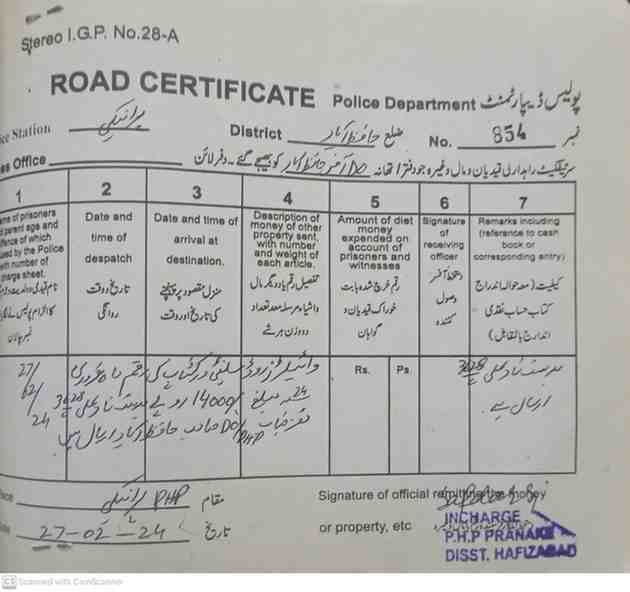 Stereo I.G.P. No.28-A
ROAD CERTIFICATE Police Department پولیس ڈیپارٹمنٹ
ce Station District ضلع حافظ آباد No. 854 نمبر
ss Office
سرٹیفکیٹ راہداری قیدیان و مال وغیرہ جو دفتر / تھانہ DO آفس حافظ آباد کو بھیجے گئے۔ دفر لائن
1
me of prisoners
parent age and
fence of which
used by the Police
with number of
charge sheet.
2
Date and
time of
despatch
تاریخ و وقت
روانگی
3
Date and time of
arrival at
destination.
منزل مقصود پر پہنچنے
کی تاریخ اور وقت
4
Description of
money of other
property sent,
with number
and weight of
each article.
تفصیل رقم یا دیگر مال
واشیاء مرسلہ معہ تعداد
ووزن ہر شے
5
Amount of diet
money
expended on
account of
prisoners and
witnesses
رقم خرچ شدہ بابت
خوراک قیدیان و
گواہان
6
Signature
of
receiving
officer
دستخط آفسر
وصول
کنندہ
7
Remarks including
(reference to cash
book or
corresponding entry)
کیفیت (معہ حوالہ اندراج
کتاب حساب نقدی
اندراج بالمقابل)
Rs. Ps.
27/
02/
24
رقم ماہ فروری
24 مبلغ 14000/ روپے
جناب DO/PHP صاحب حافظ آباد ارسال ہیں
ارسال ہے
PHP مقام
27-02-24 تاریخ
Signature of official remitting the money
or property, etc
INCHARGE
P.H.P PRANAKE
DISST. HAFIZABAD
CS Scanned with CamScanner